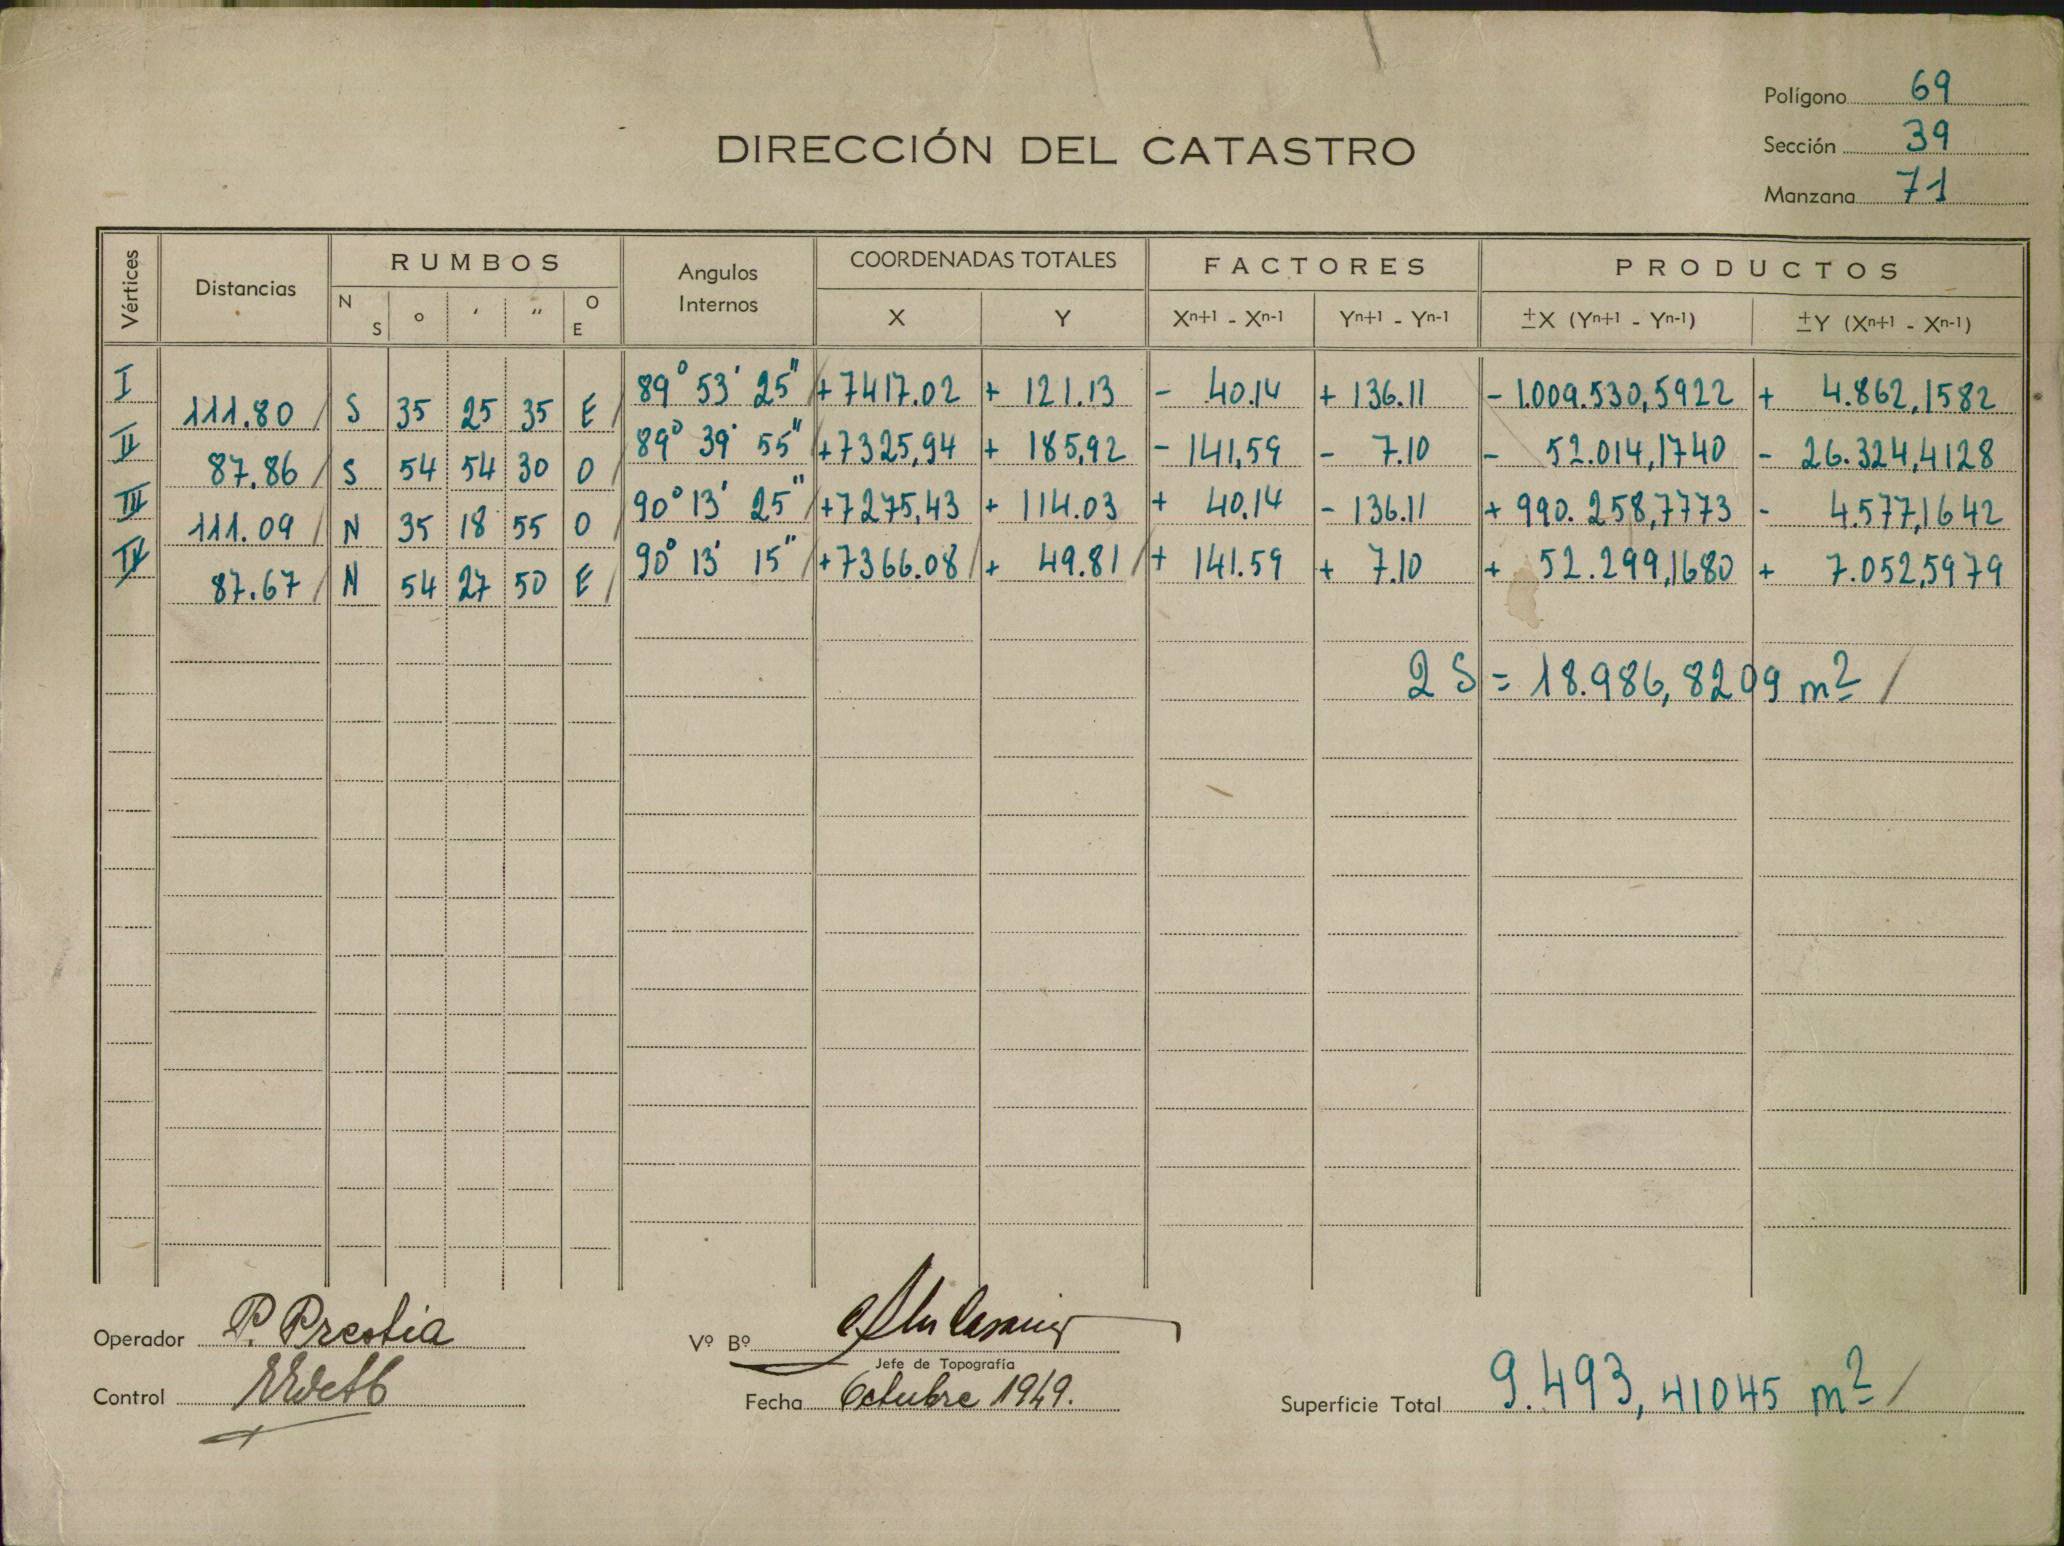 Polígono 69
DIRECCIÓN DEL CATASTRO
Sección 39
Manzana 71
Vértices Distancias RUMBOS Angulos Internos COORDENADAS TOTALES FACTORES PRODUCTOS
N S ° ' " O E X Y Xn+1 - Xn-1 Yn+1 - Yn-1 ±X (Yn+1 - Yn-1) ±Y (Xn+1 - Xn-1)
I 89° 53' 25" +7417.02 + 121.13 - 40.14 + 136.11 - 1.009.530,5922 + 4.862,1582
111.80 S 35 25 35 E
II 89° 39' 55" +7325,94 + 185,92 - 141,59 - 7.10 - 52.014,1740 - 26.324,4128
87.86 S 54 54 30 O
III 90° 13' 25" +7275,43 + 114.03 + 40.14 - 136.11 + 990.258,7773 - 4.577,1642
111.09 N 35 18 55 O
IV 90° 13' 15" +7366.08 + 49.81 + 141.59 + 7.10 + 52.299,1680 + 7.052,5979
87.67 N 54 27 50 E
2 S = 18.986,8209 m²
Operador P. Prestia
Vº Bº
Jefe de Topografía
Control
Fecha Octubre 1949.
Superficie Total 9.493,41045 m²